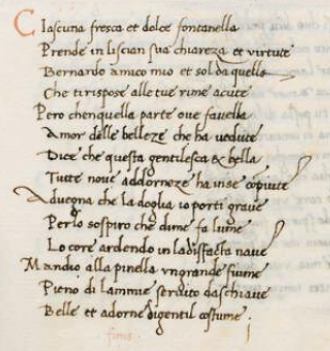 Ciascuna fresca et dolce fontanella
Prende in liscian sua chiareza et virtute
Bernardo amico mio et sol da quella
Che ti rispose alle tue rime acute
Pero che in quella parte ove favella
Amor delle belleze che ha vedute
Dice che questa gentilesca & bella
Tutte nove addorneze ha in se copiute
Advegna che la doglia io porti grave
Per lo sospiro che di me fa lume
Lo core ardendo in la disfacta nave
Mando alla pinella un grande fiume
Pieno di lammie servito da schiave
Belle et adorne di gentil costume